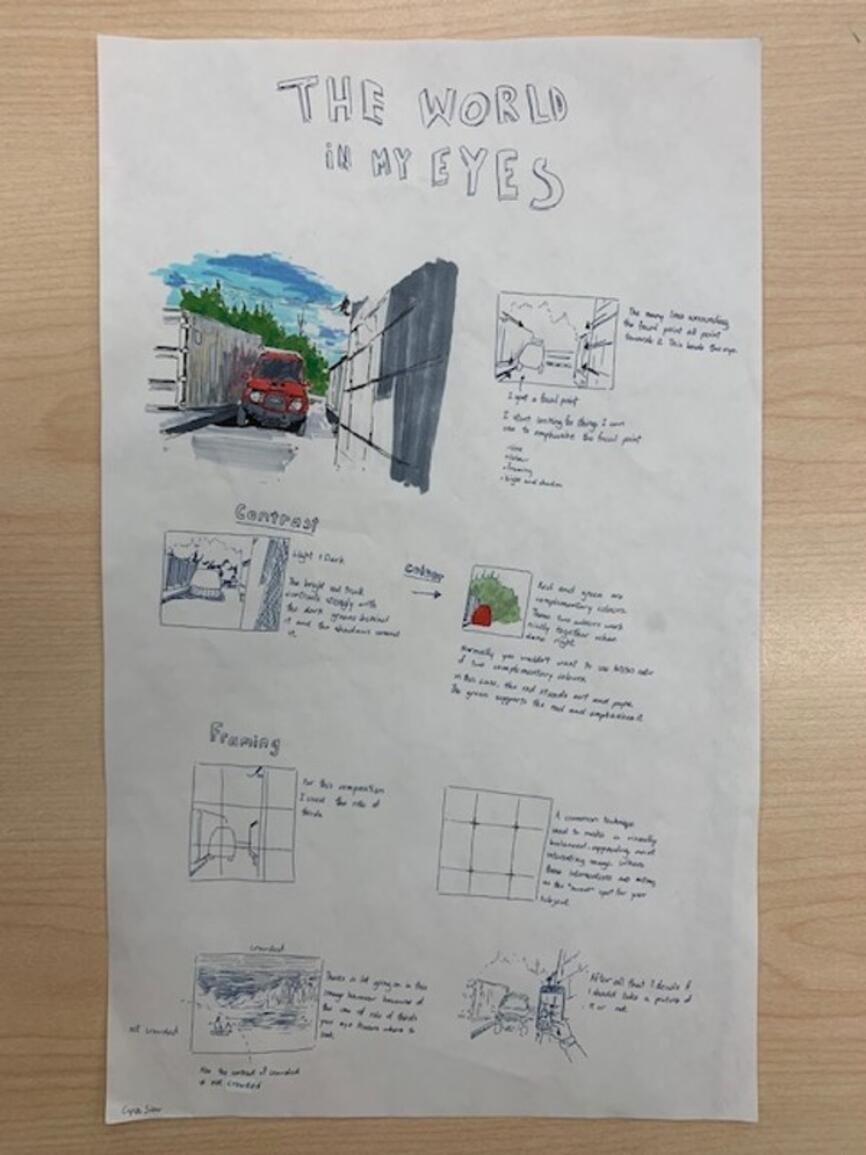 THE WORLD
IN MY EYES
The many lines surrounding
the focal point all point
towards it. This leads the eye.
I spot a focal point
I start looking for things I can
use to emphasize the focal point
-line
-colour
-framing
-light and shadow
Contrast
Light & Dark
The bright red truck
contrasts strongly with
the dark greens behind
it and the shadows around
it.
colour
Red and green are
complementary colours.
These two colours work
nicely together when
done right.
Normally you wouldn't want to use
of two complementary colours.
in this case, the red stands out and pops.
The green supports the red and emphasizes it.
Framing
For this composition
I used the rule of
thirds.
A common technique
used to make a visually
balanced, and
interesting image. Where
these intersections are acting
as the "sweet" spot for your
subject.
crowded
not crowded
There's a lot going on in this
image however because of
the use of rule of thirds
your eye knows where to
look.
the contrast of crowded
& not crowded
After all that I decide if
I should take a picture of
it or not.